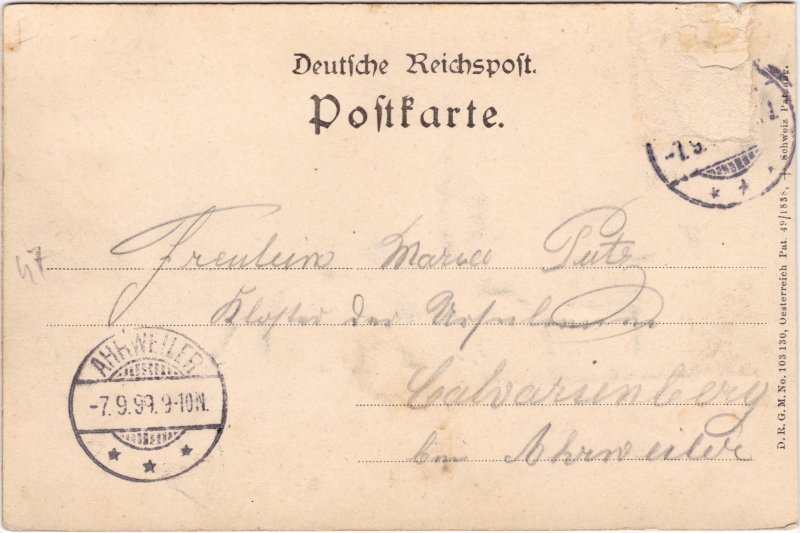 Deutsche Reichspost.
Postkarte.
-7.9.
D.R.G.M. No. 103 130, Oesterreich Pat. 49/1838, + Schweiz
47
Freulein
Kloster der Ursulinen
Calvarienberg
bei Ahrweiler
AHRWEILER
-7.9.99.9-10N.